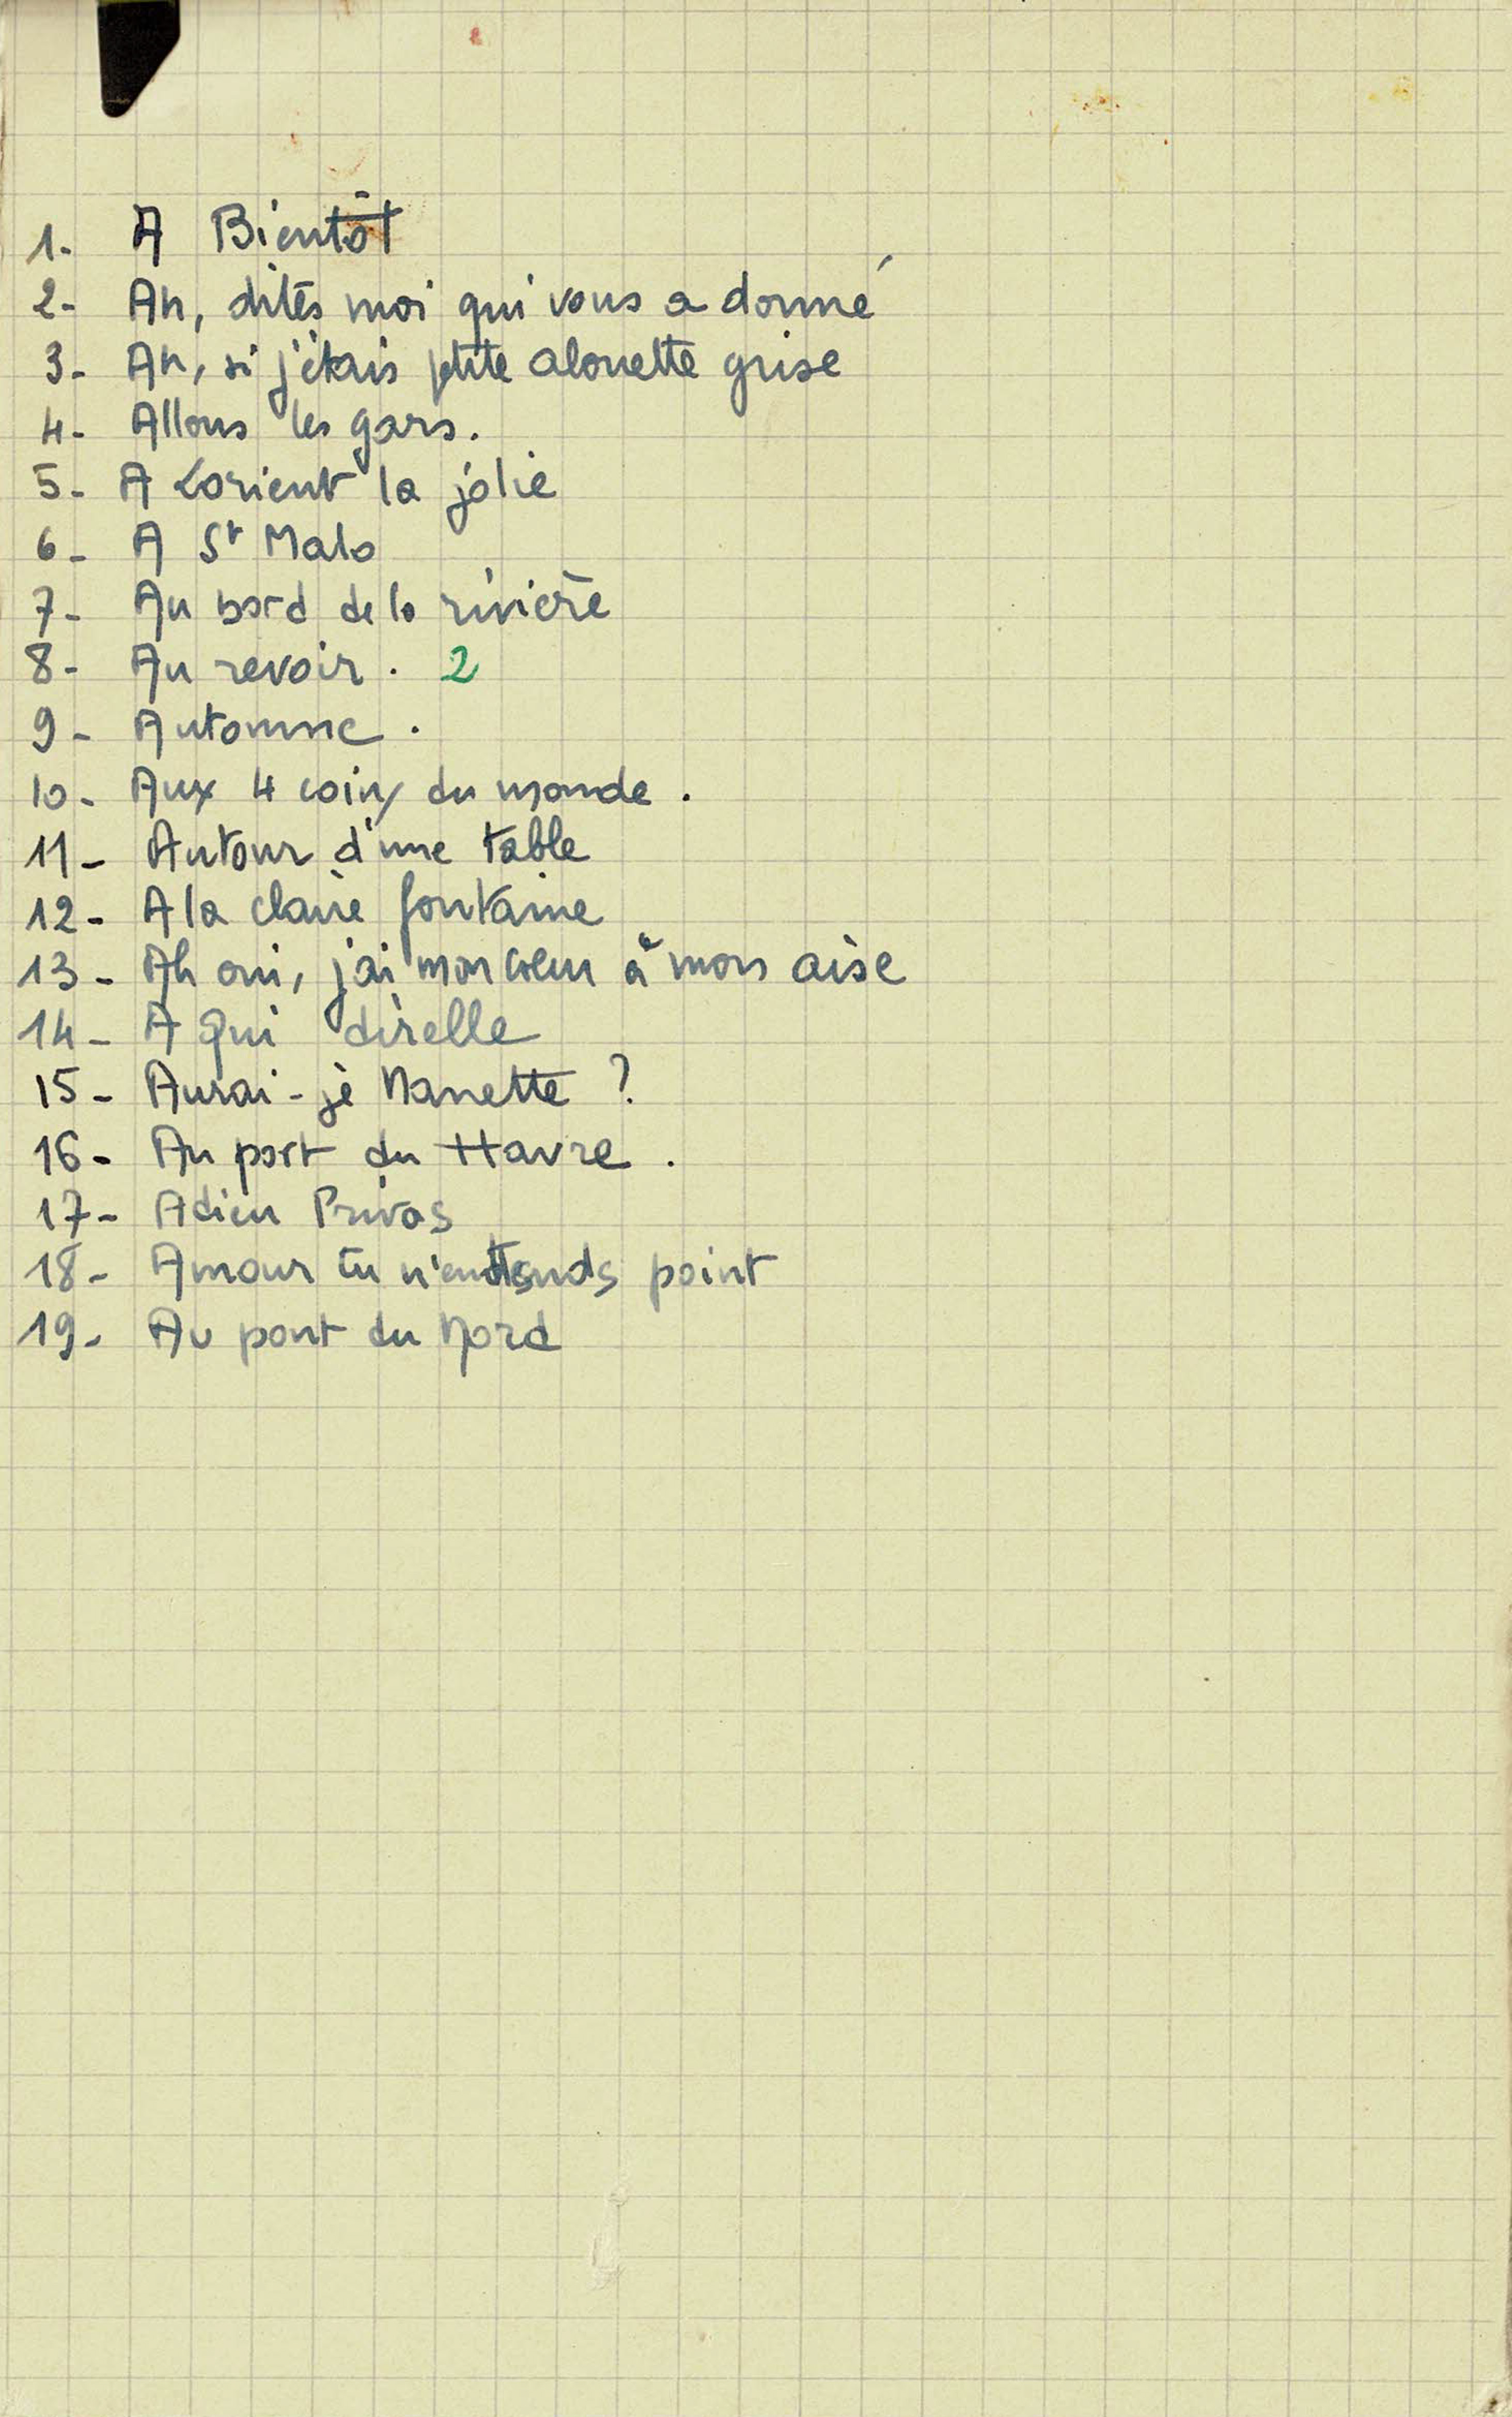 1. A Bientôt
2- Ah, dites moi qui vous a donné
3- Ah, si j'étais petite alouette grise
4- Allons les gars.
5- A Lorient la jolie
6- A St Malo
7- Au bord de la rivière
8- Au revoir. 2
9- Automne.
10- Aux 4 coins du monde.
11- Autour d'une table
12- A la claire fontaine
13- Ah oui, j'ai mon coeur à mon aise
14- A qui direlle
15- Aurai-je Nanette ?
16- Au port du Havre.
17- Adieu Privas
18- Amour tu n'entends point
19- Au pont du Nord